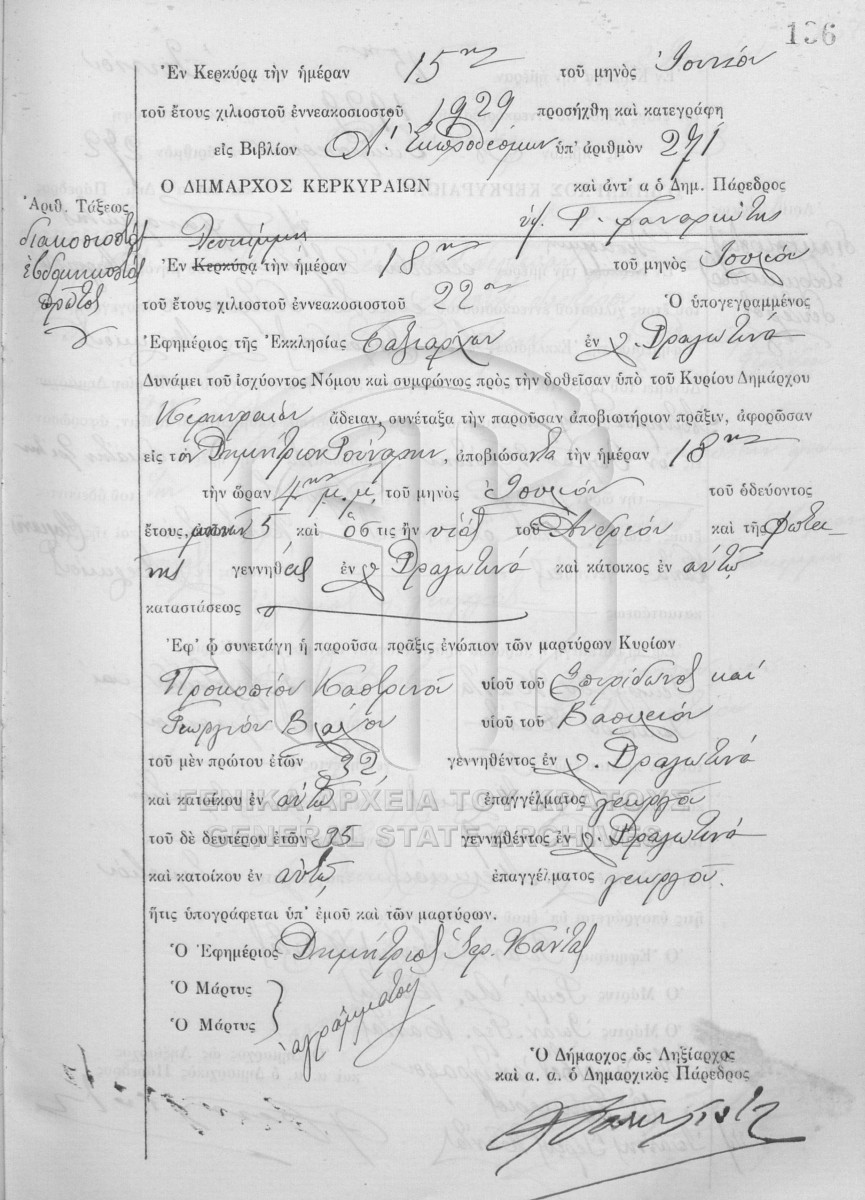 136
Ἐν Κερκύρᾳ τὴν ἡμέραν 15ην τοῦ μηνὸς Ἰουνίου
τοῦ ἔτους χιλιοστοῦ ἐννεακοσιοστοῦ 1929 προσήχθη καὶ κατεγράφη
εἰς Βιβλίον Α' Ἐκπροθέσμων ὑπ' ἀριθμὸν 271
Ο ΔΗΜΑΡΧΟΣ ΚΕΡΚΥΡΑΙΩΝ καὶ ἀντ' α ὁ Δημ. Πάρεδρος
Ἀριθ. Τάξεως
διακοσιοστὸς
ἑβδομηκοστὸς
πρῶτος
Λευκίμμη
Ἐν Κερκύρᾳ τὴν ἡμέραν 18ην τοῦ μηνὸς Ἰουλίου
τοῦ ἔτους χιλιοστοῦ ἐννεακοσιοστοῦ 22ου Ὁ ὑπογεγραμμένος
Ἐφημέριος τῆς Ἐκκλησίας Ταξιαρχῶν ἐν χ. Δραγωτινά
Δυνάμει τοῦ ἰσχύοντος Νόμου καὶ συμφώνως πρὸς τὴν δοθεῖσαν ὑπὸ τοῦ Κυρίου Δημάρχου
Κερκυραίων ἄδειαν, συνέταξα τὴν παροῦσαν ἀποβιωτήριον πρᾶξιν, ἀφορῶσαν
εἰς τὸν Δημήτριον, ἀποβιώσαντα τὴν ἡμέραν 18ην
τὴν ὥραν 4ην μ.μ. τοῦ μηνὸς Ἰουλίου τοῦ ὁδεύοντος
ἔτους, 5 καὶ ὅστις ἦν υἱὸς τοῦ Ἀνδρέου καὶ τῆς Φωτει-
νῆς γεννηθεὶς ἐν χ. Δραγωτινά καὶ κάτοικος ἐν αὐτῷ
καταστάσεως
Ἐφ' ᾧ συνετάγη ἡ παροῦσα πρᾶξις ἐνώπιον τῶν μαρτύρων Κυρίων
Προκοπίου Καστρινοῦ υἱοῦ τοῦ Σπυρίδωνος καὶ
Γεωργίου Βλάχου υἱοῦ τοῦ Βασιλείου
τοῦ μὲν πρώτου ἐτῶν 32 γεννηθέντος ἐν χ. Δραγωτινά
καὶ κατοίκου ἐν αὐτῷ ἐπαγγέλματος γεωργοῦ
τοῦ δὲ δευτέρου ἐτῶν 35 γεννηθέντος ἐν χ. Δραγωτινά
καὶ κατοίκου ἐν αὐτῷ ἐπαγγέλματος γεωργοῦ.
ἥτις ὑπογράφεται ὑπ' ἐμοῦ καὶ τῶν μαρτύρων.
Ὁ Ἐφημέριος Δημήτριος Ἱερ.
Ὁ Μάρτυς
Ὁ Μάρτυς
ἀγράμματοι
Ὁ Δήμαρχος ὡς Ληξίαρχος
καὶ α. α. ὁ Δημαρχικὸς Πάρεδρος
ΓΕΝΙΚΑ ΑΡΧΕΙΑ ΤΟΥ ΚΡΑΤΟΥΣ
GENERAL STATE ARCHIVES